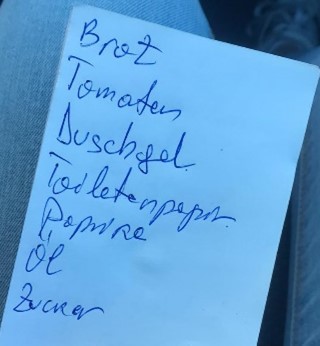 Brot
Tomaten
Duschgel
Toiletenpapir
Paprika
Öl
Zucker